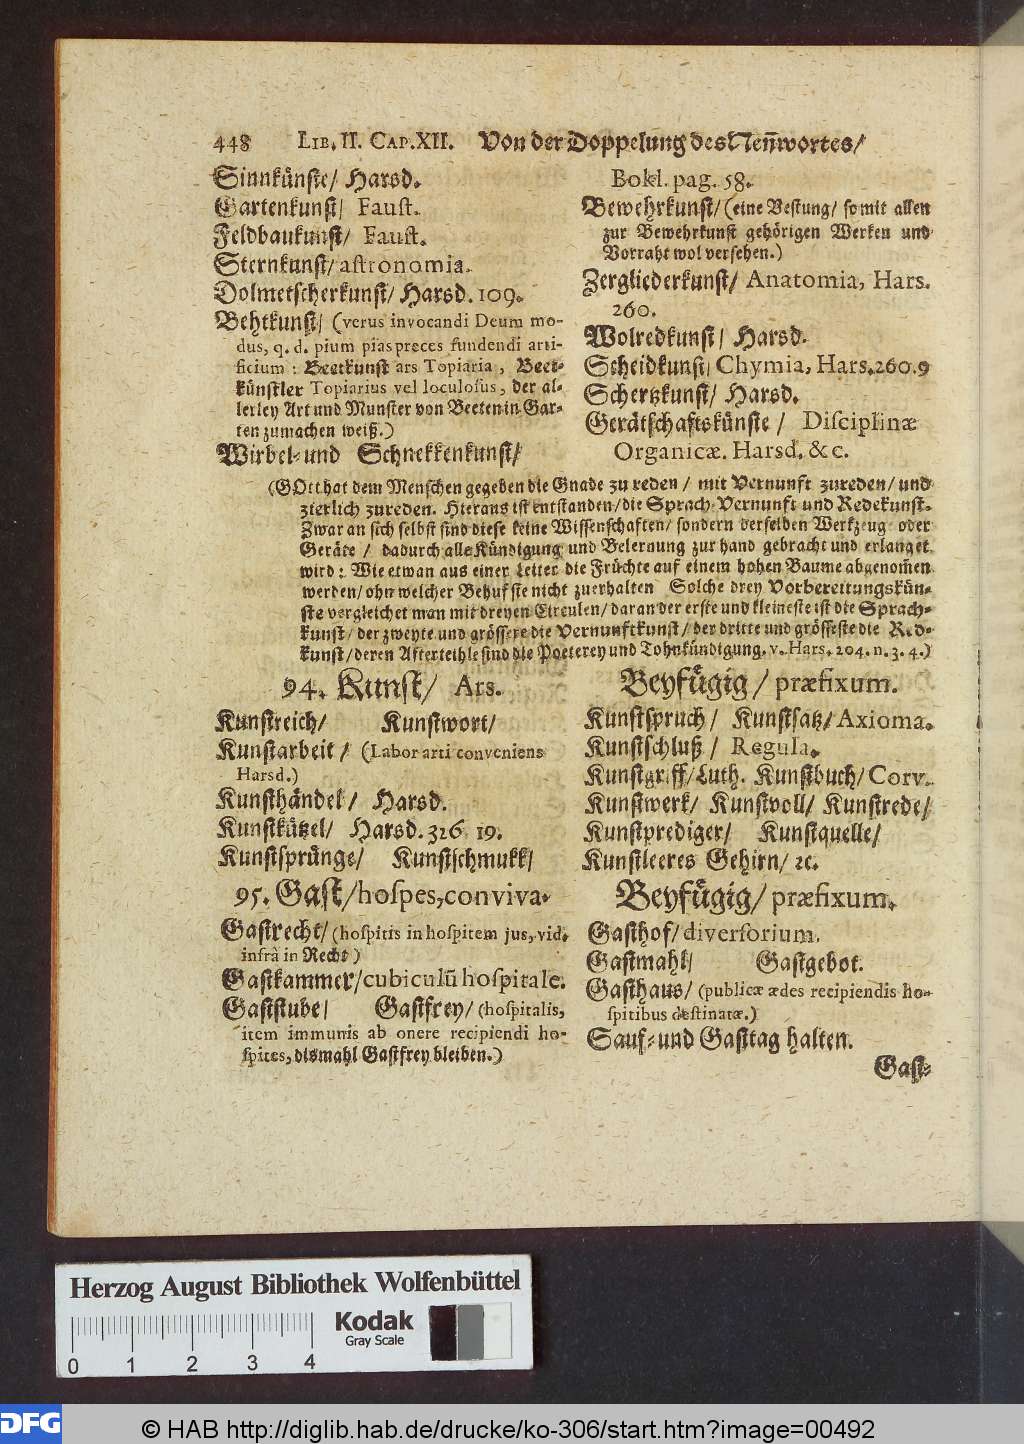 448 LIB. II. CAP. XII. Von der Doppelung des Neñwortes/
Sinnkünste/ Harsd.
Gartenkunst/ Faust.
Feldbaukunst/ Faust.
Sternkunst/ astronomia.
Dolmetscherkunst/ Harsd. 109.
Behtkunst/ (verus invocandi Deum mo-
dus, q. d. pium pias preces fundendi arti-
ficium: Beetkunst ars Topiaria, Beet-
künstler Topiarius vel loculosus, der al-
lerley Art und Munster von Beeten in Gar-
ten zumachen weiß.)
Wirbel- und Schnekkenkunst/
Bokl. pag. 58.
Bewehrkunst/ (eine Vestung/ so mit allen
zur Bewehrkunst gehörigen Werken und
Vorraht wol versehen.)
Zergliederkunst/ Anatomia, Hars.
260.
Wolredkunst/ Harsd.
Scheidkunst/ Chymia, Hars. 260.9
Schertzkunst/ Harsd.
Gerätschaftskünste/ Disciplinæ
Organicæ. Harsd. &c.
(GOtt hat dem Menschen gegeben die Gnade zu reden/ mit Vernunft zureden/ und
zierlich zureden. Hieraus ist entstanden/ die Sprach- Vernunft und Redekunst.
Zwar an sich selbst sind diese keine Wissenschaften/ sondern derselben Werkzeug oder
Geräte/ dadurch alle Kündigung und Belernung zur hand gebracht und erlanget
wird: Wie etwan aus einer Leiter die Früchte auf einem hohen Baume abgenom̃en
werden/ ohn welcher Behuf sie nicht zuerhalten Solche drey Vorbereitungskün-
ste vergleichet man mit dreyen Circulen/ daran der erste und kleineste ist die Sprach-
kunst/ der zweyte und grössere die Vernunftkunst/ der dritte und grösseste die Red-
kunst/ deren Afterteihle sind die Poeterey und Tohnkündigung. v. Hars. 204. n. 3. 4.)
94. Kunst/ Ars. Beyfügig/ præfixum.
Kunstreich/ Kunstwort/
Kunstarbeit/ (Labor arti conveniens
Harsd.)
Kunsthändel/ Harsd.
Kunstkützel/ Harsd. 326 19.
Kunstsprünge/ Kunstschmukk/
Kunstspruch/ Kunstsatz/ Axioma.
Kunstschluß/ Regula.
Kunstgriff/ Luth. Kunstbuch/ Corv.
Kunstwerk/ Kunstvoll/ Kunstrede/
Kunstprediger/ Kunstquelle/
Kunstleeres Gehirn/ ꝛc.
95. Gast/ hospes, conviva. Beyfügig/ præfixum.
Gastrecht/ (hospitis in hospitem jus, vid.
infrà in Recht)
Gastkammer/ cubiculũ hospitale.
Gaststube/ Gastfrey/ (hospitalis,
item immunis ab onere recipiendi ho-
spites, dismahl Gastfrey bleiben.)
Gasthof/ diversorium.
Gastmahl/ Gastgebot.
Gasthaus/ (publicæ ædes recipiendis ho-
spitibus destinatæ.)
Sauf- und Gasttag halten.
Gast-
Herzog August Bibliothek Wolfenbüttel
Kodak
Gray Scale
0 1 2 3 4
DFG
© HAB http://diglib.hab.de/drucke/ko-306/start.htm?image=00492